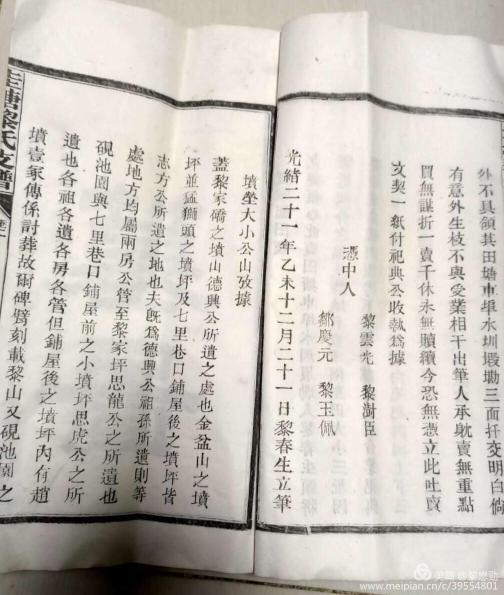 外不具領其田塘車埠水圳塅勘三面扦交明白倘
有意外生枝不與受業相干出筆人承躭賣無重點
買無謀折一賣千休永無贖續今恐無憑立此吐賣
文契一紙付祀典公收執為據
憑中人
黎雲光 黎澍臣
鄒慶元 黎玉佩
光緒二十一年乙未十二月二十一日黎春生立筆
墳塋大小公山攷據
蓋黎家礄之墳山德興公所遺之處也金盆山之墳
坪並猛獅頭之墳坪及七里巷口鋪屋後之墳坪皆
志方公所遺之地也夫旣為德興公祖孫所遺則等
處地方均屬兩房公管至黎家坪思龍公之所遺也
硯池園與七里巷口鋪屋前之小墳坪思虎公之所
遺也各祖各遺各房各管但鋪屋後之墳坪內有趙
墳壹冢傳係討葬故爾碑劈刻載黎山又硯池園之
黎氏支譜
www.meipian.cn/c/39554801